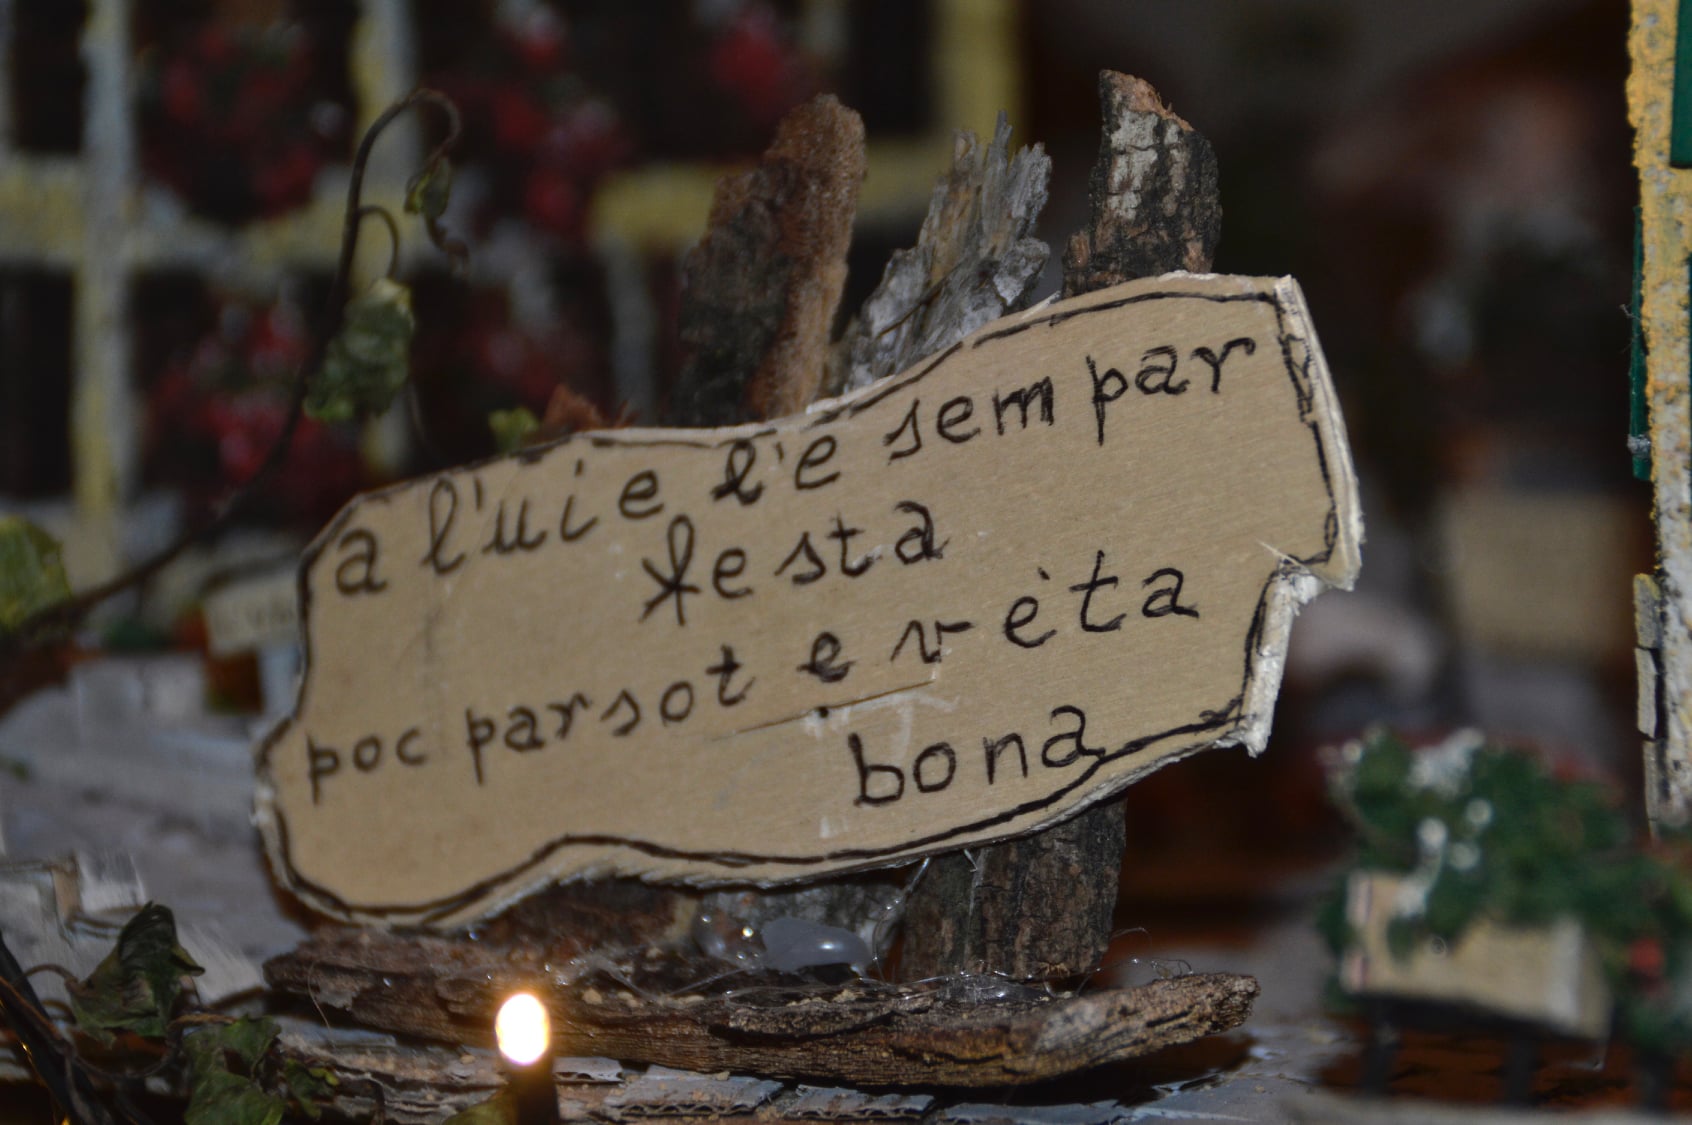 a l'uie l'e sempar
festa
poc parsot e vèta
bona